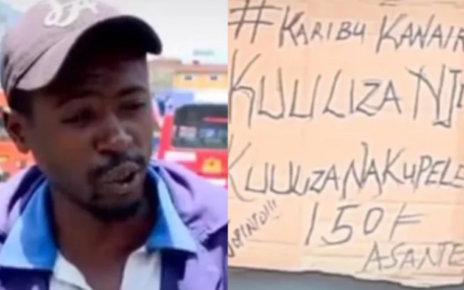 #KARIBU KANAIR
KUULIZA NJI
KUULIZA NA KUPELE
150F
ASANTE